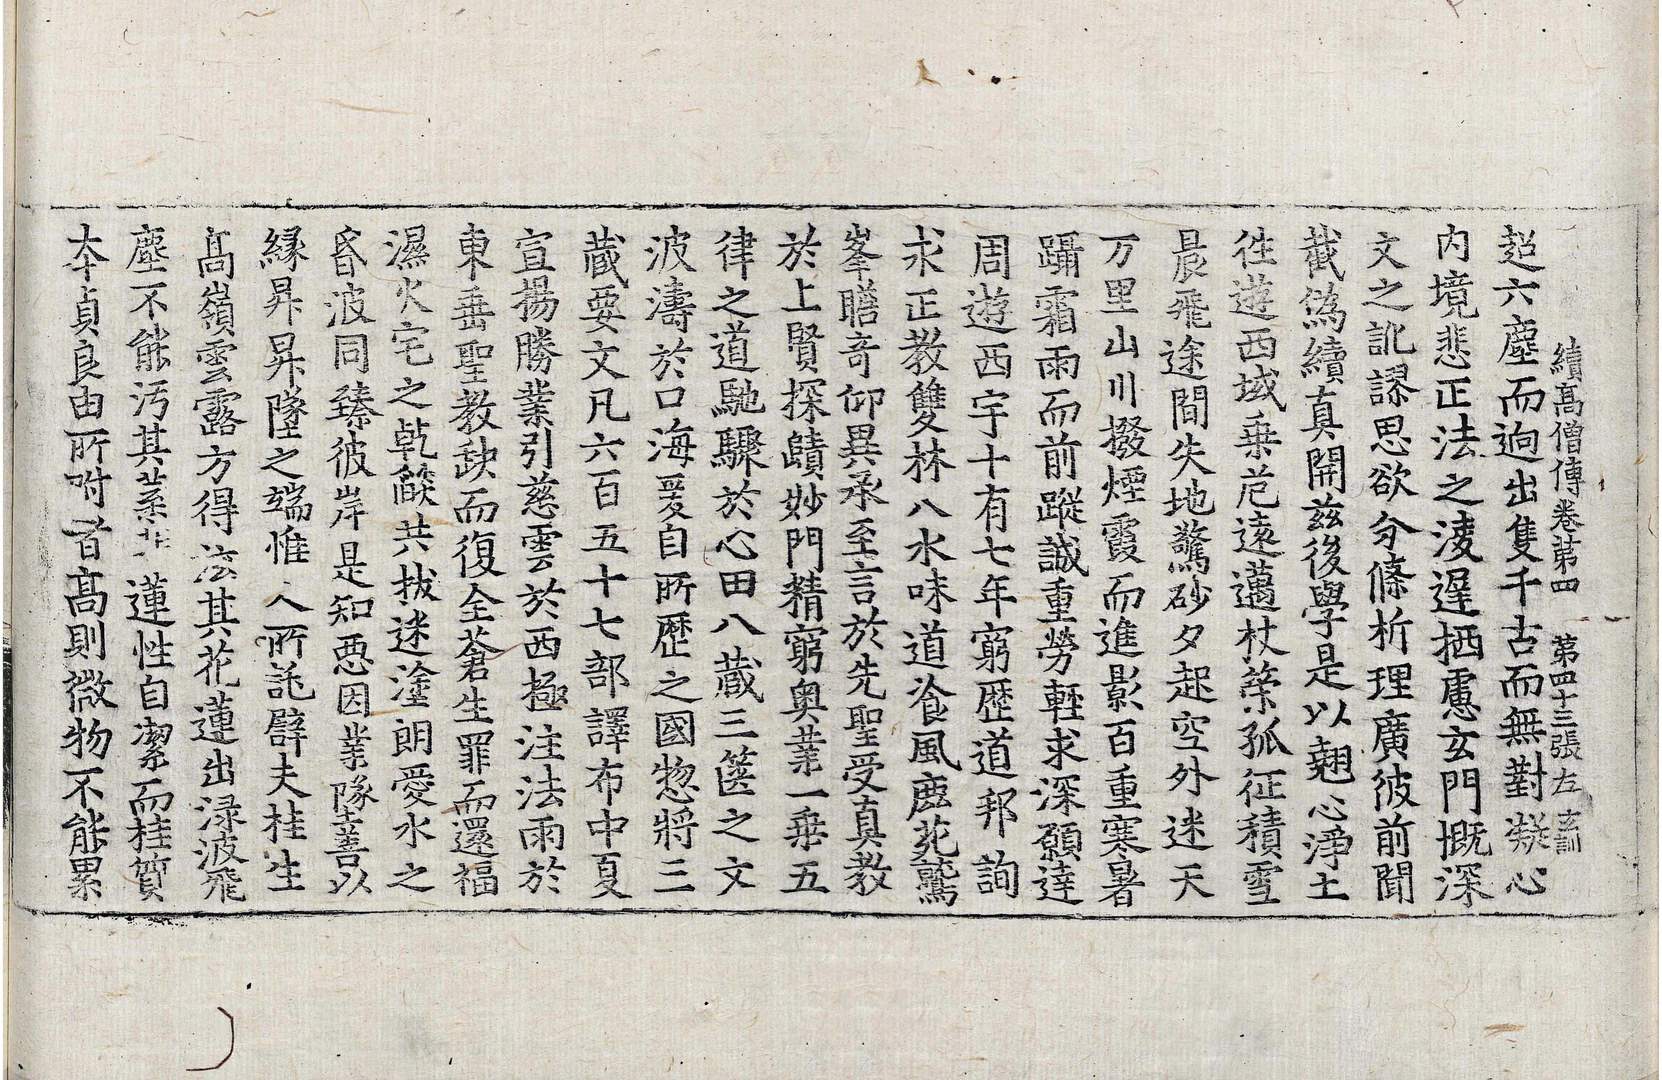 續高僧傳卷第四　第四十三張左　玄訓
超六塵而逈出隻千古而無對凝心
內境悲正法之淩遲栖慮玄門慨深
文之訛謬思欲分條析理廣彼前聞
截僞續真開茲後學是以翹心淨土
徃遊西域乗危遠邁杖策孤征積雪
晨飛途間失地驚砂夕起空外迷天
万里山川撥煙霞而進影百重寒暑
躡霜雨而前蹤誠重勞輕求深願達
周遊西宇十有七年窮歷道邦詢
求正教雙林八水味道飡風鹿苑鷲
峯瞻竒仰異承至言於先聖受真教
於上賢探賾妙門精窮奧業一乗五
律之道馳驟於心田八藏三篋之文
波濤於口海爰自所歷之國惣將三
藏要文凡六百五十七部譯布中夏
宣揚勝業引慈雲於西極注法雨於
東垂聖教缺而復全蒼生罪而還福
濕火宅之乾燄共拔迷塗朗愛水之
昏波同臻彼岸是知惡因業墜善以
緣昇昇墜之端惟人所託譬夫桂生
髙嶺雲露方得泫其花蓮出淥波飛
塵不能汚其葉非蓮性自潔而桂質
本貞良由所附者高則微物不能累